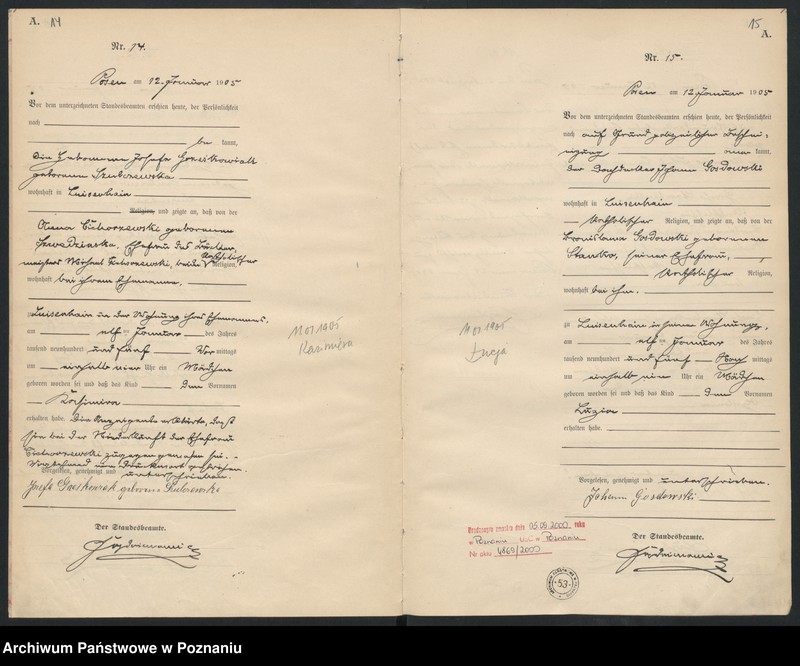 A. 14
Nr. 14.
Posen am 12. Januar 1905
Vor dem unterzeichneten Standesbeamten erschien heute, der Persönlichkeit
nach
be kannt,
die Hebamme Josefa
geborene
wohnhaft in Luisenhain
Religion, und zeigte an, daß von der
Anna geborenen
Ehefrau des
Michael beide katholischer Religion,
wohnhaft bei ihrem Ehemanne,
zu Luisenhain in der Wohnung ihres Ehemannes,
am elf ten Januar des Jahres
tausend neunhundert und fünf Vor mittags
um einhalb ein Uhr ein Mädchen
geboren worden sei und daß das Kind den Vornamen
Kasimira
erhalten habe. Die Anzeigende erklärte, daß
sie bei der Niederkunft der Ehefrau
zugegen gewesen sei. -
Vorstehend Druckwort gestrichen.
Vorgelesen, genehmigt und unterschrieben.
geborene
Der Standesbeamte.
11 01 1905
Kazimiera
15
A.
Nr. 15.
Posen am 12 Januar 1905
Vor dem unterzeichneten Standesbeamten erschien heute, der Persönlichkeit
nach auf Grund polizeilicher Beschei-
nigung aner kannt,
der Dachdecker Johann Gosdowski
wohnhaft in Luisenhain
katholischer Religion, und zeigte an, daß von der
Bronislawa Gosdowski geborenen
seiner Ehefrau,
katholischer Religion,
wohnhaft bei ihm.
zu Luisenhain in seiner Wohnung,
am elf ten Januar des Jahres
tausend neunhundert und fünf Nach mittags
um einhalb ein Uhr ein Mädchen
geboren worden sei und daß das Kind den Vornamen
Luzia
erhalten habe.
Vorgelesen, genehmigt und unterschrieben.
Johann Gosdowski
Der Standesbeamte.
11 01 1905
Łucja
05.09.2000 roku
w Poznaniu w Poznaniu
Nr aktu /2000
53
Archiwum Państwowe w Poznaniu